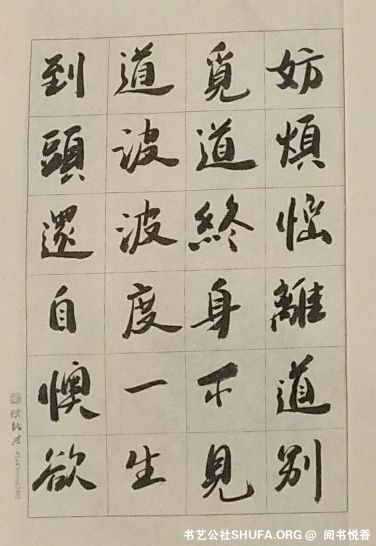 妨煩惱離道別
覓道終身不見
道波波度一生
到頭還自懊欲
书艺公社SHUFA.ORG @ 阅书悦香